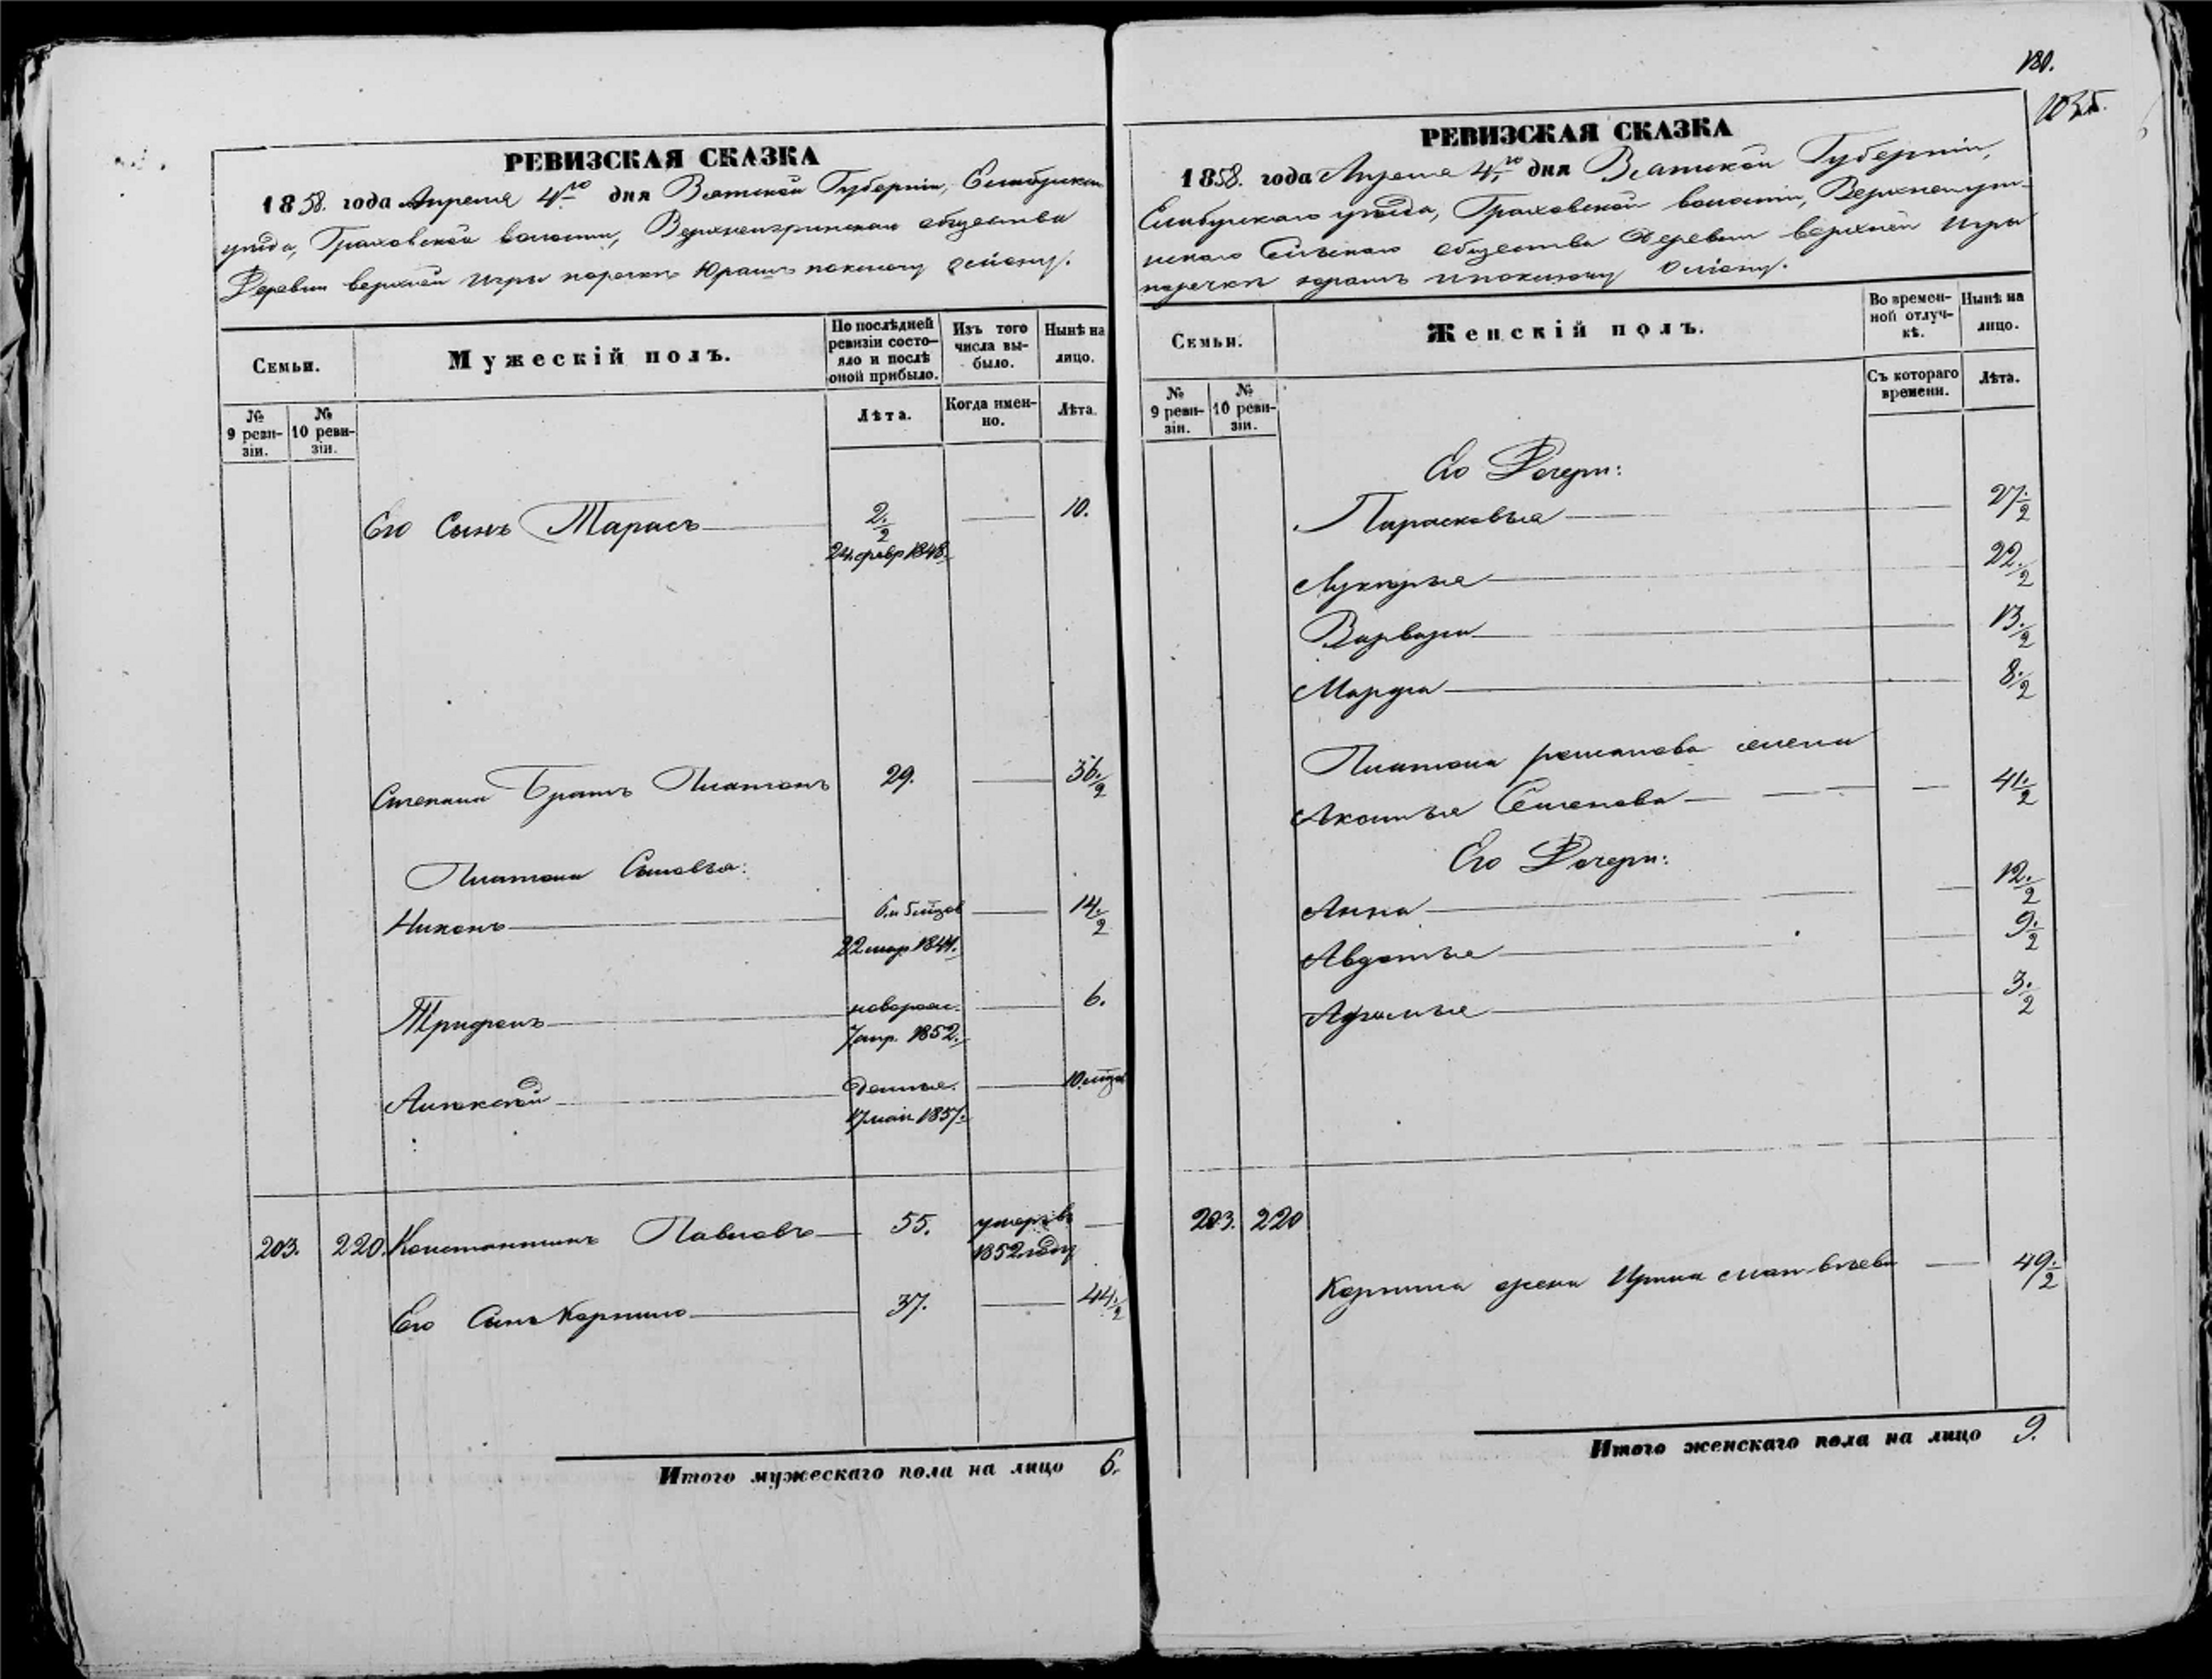 РЕВИЗСКАЯ СКАЗКА
1858. года Апреля 4го дня Вятской Губернiи, Елабужскаго
уѣзда, Граховской волости, Верхнеигринскаго общества
Деревни верхней Игры поречкѣ Юрашъ
Семьи.
Мужескiй полъ.
По послѣдней ревизiи состояло и послѣ оной прибыло.
Изъ того числа выбыло.
Нынѣ на лицо.
№ 9 ревизiи.
№ 10 ревизiи.
Лѣта.
Когда именно.
Лѣта.
Его Сынъ Тарасъ 2.½ 10.
24 февр 1848.
Степана Братъ Платонъ 29. 36.½
Платона Сыновья:
Никонъ 14.½
22 мар. 1844.
Трифонъ новорож. 6.
7 апр. 1852.
Алексѣй 10 мѣцов
17 маiя 1857.
203. 220. Константинъ Павловъ 55. умеръ въ
1852 году
Его Сынъ Корнило 37. 44.½
Итого мужескаго пола на лицо 6.
180.
РЕВИЗСКАЯ СКАЗКА
1858. года Апреля 4го дня Вятской Губернiи,
Елабужскаго уѣзда, Граховской волости, Верхнеигри-
нскаго Сельскаго общества Деревни верхней Игры
поречкѣ юрашъ
Семьи.
Женскiй полъ.
Во временной отлучкѣ.
Нынѣ на лицо.
№ 9 ревизiи.
№ 10 ревизiи.
Съ котораго времени.
Лѣта.
Его Дочери:
Парасковья 27.½
Лукерья 22.½
Варвара 13.½
Марфа 8.½
Платона романова жена
Аколинья Семенова 41.½
Его Дочери:
Анна 12.½
Авдотья 9.½
3.½
203. 220
Корнила жена Ирина 49.½
Итого женскаго пола на лицо 9.